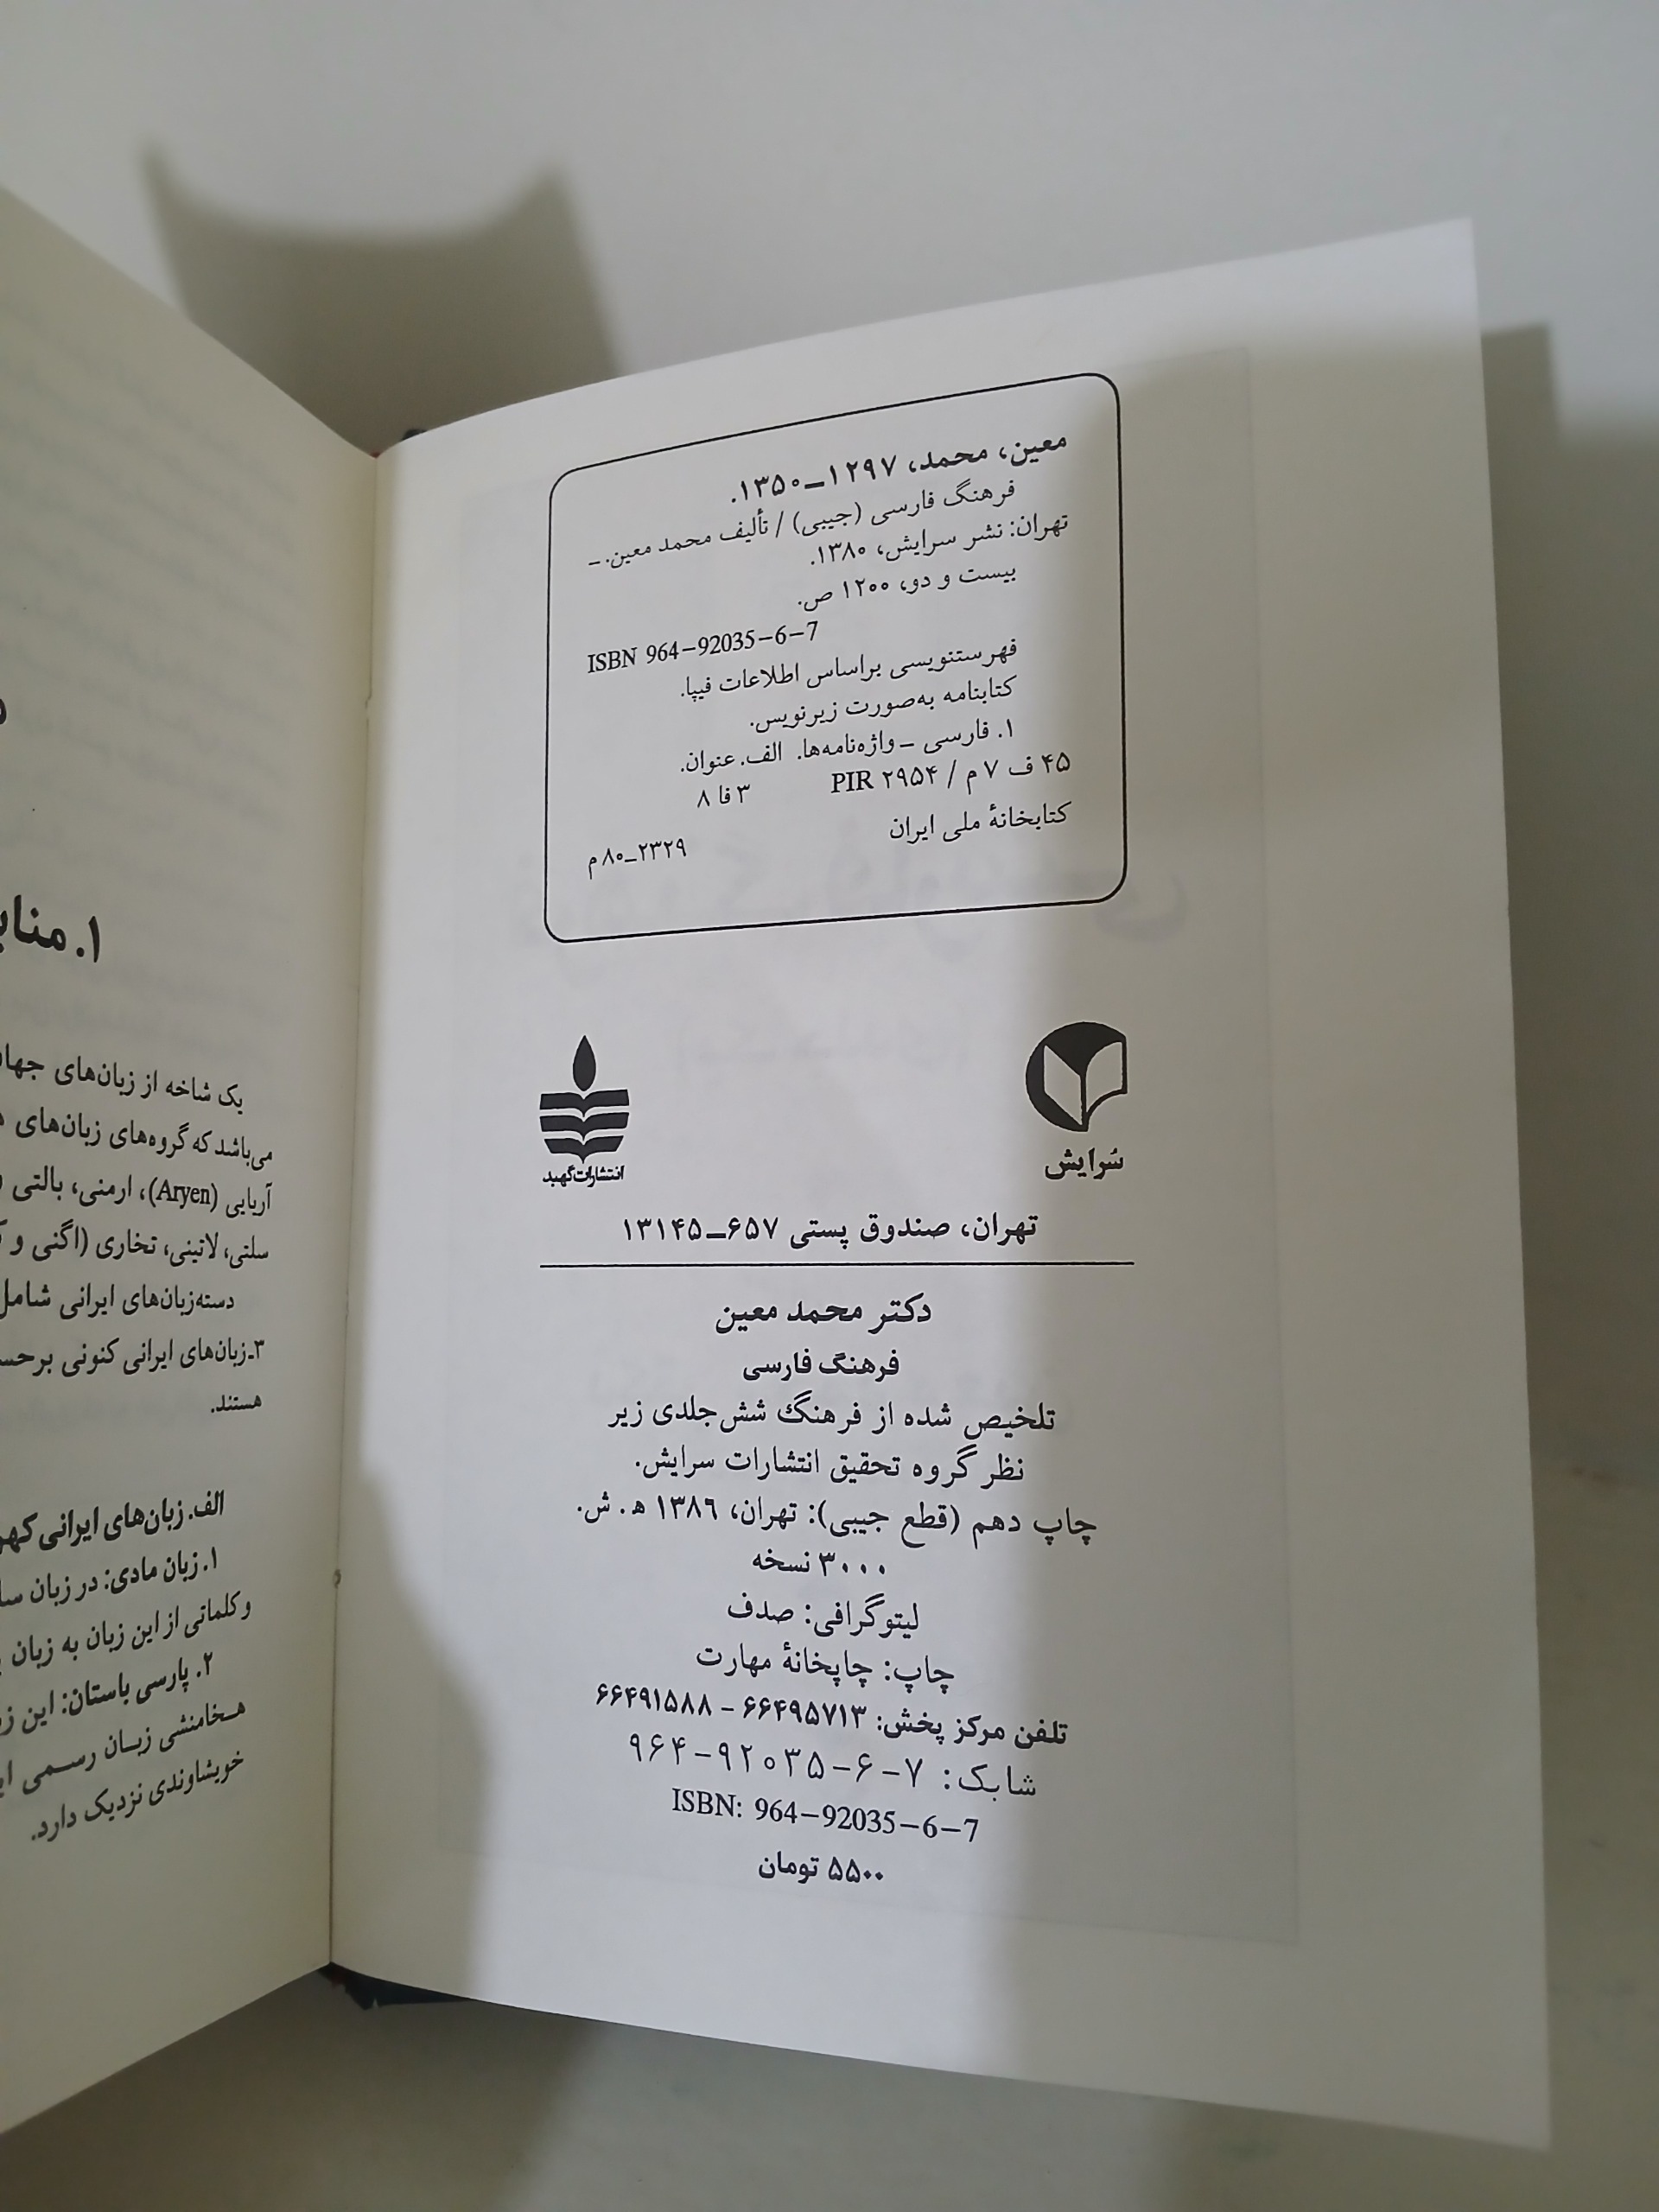 معین، محمد، ۱۲۹۷ـ۱۳۵۰.
فرهنگ فارسی (جیبی) / تألیف محمد معین. ـ
تهران: نشر سرایش، ۱۳۸۰.
بیست و دو، ۱۲۰۰ ص.
ISBN 964-92035-6-7
فهرستنویسی براساس اطلاعات فیپا.
کتابنامه به‌صورت زیرنویس.
۱. فارسی ـ واژه‌نامه‌ها. الف. عنوان.
۴۵ ف ۷ م / PIR ۲۹۵۴ ۳ فا ۸
کتابخانهٔ ملی ایران ۲۳۲۹ـ۸۰ م
سُرایش
انتشارات گهبد
تهران، صندوق پستی ۶۵۷ـ۱۳۱۴۵
دکتر محمد معین
فرهنگ فارسی
تلخیص شده از فرهنگ شش‌جلدی زیر
نظر گروه تحقیق انتشارات سرایش.
چاپ دهم (قطع جیبی): تهران، ۱۳۸۶ ه‍. ش.
۳۰۰۰ نسخه
لیتوگرافی: صدف
چاپ: چاپخانهٔ مهارت
تلفن مرکز پخش: ۶۶۴۹۵۷۱۳ - ۶۶۴۹۱۵۸۸
شابک: ۷-۶-۹۲۰۳۵-۹۶۴
ISBN: 964-92035-6-7
۵۵۰۰ تومان
۱.
یک شاخه از زبان‌های
می‌باشد که گروه‌های زبان‌های
آریایی (Aryen)، ارمنی، بالتی
سلتی، لاتینی، تخاری (اگنی و
دسته‌زبان‌های ایرانی شامل
۳-زبان‌های ایرانی کنونی
هستند.
الف. زبان‌های ایرانی
۱. زبان مادی: در زبان
و کلماتی از این زبان به زبان
۲. پارسی باستان: این
هخامنشی زبان رسمی
خویشاوندی نزدیک دارد.